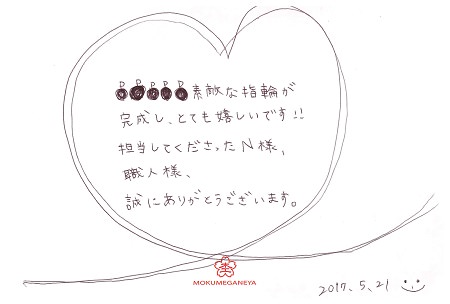 素敵な指輪が
完成し、とても嬉しいです!!
担当してくださったN様、
職人様、
誠にありがとうございます。
MOKUMEGANEYA
2017. 5. 21